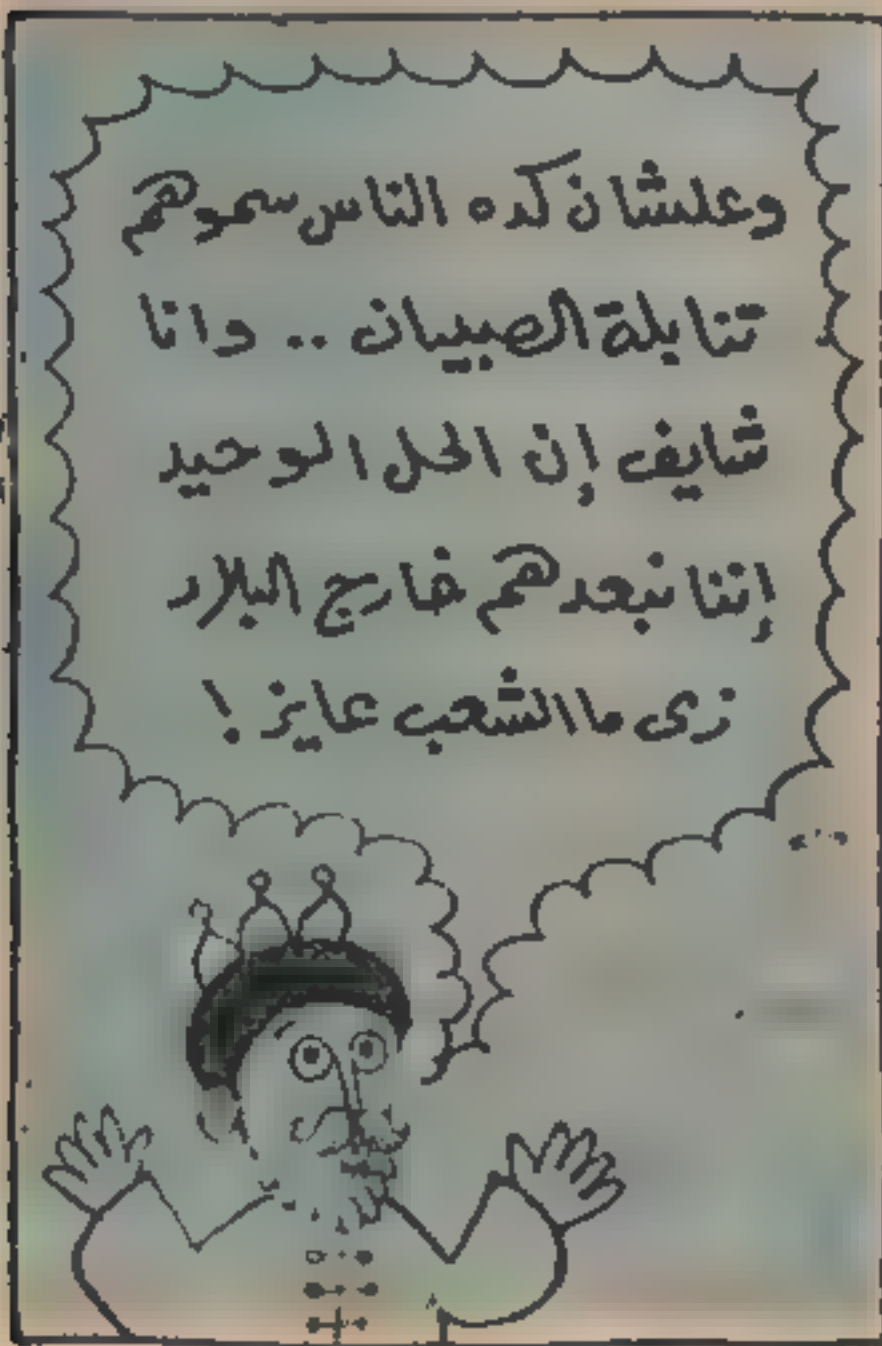 وعلشان كده الناس سموهم
تنابلة الصبيان .. وانا
شايف إن الحل الوحيد
إننا نبعدهم خارج البلاد
زى ما الشعب عايز !